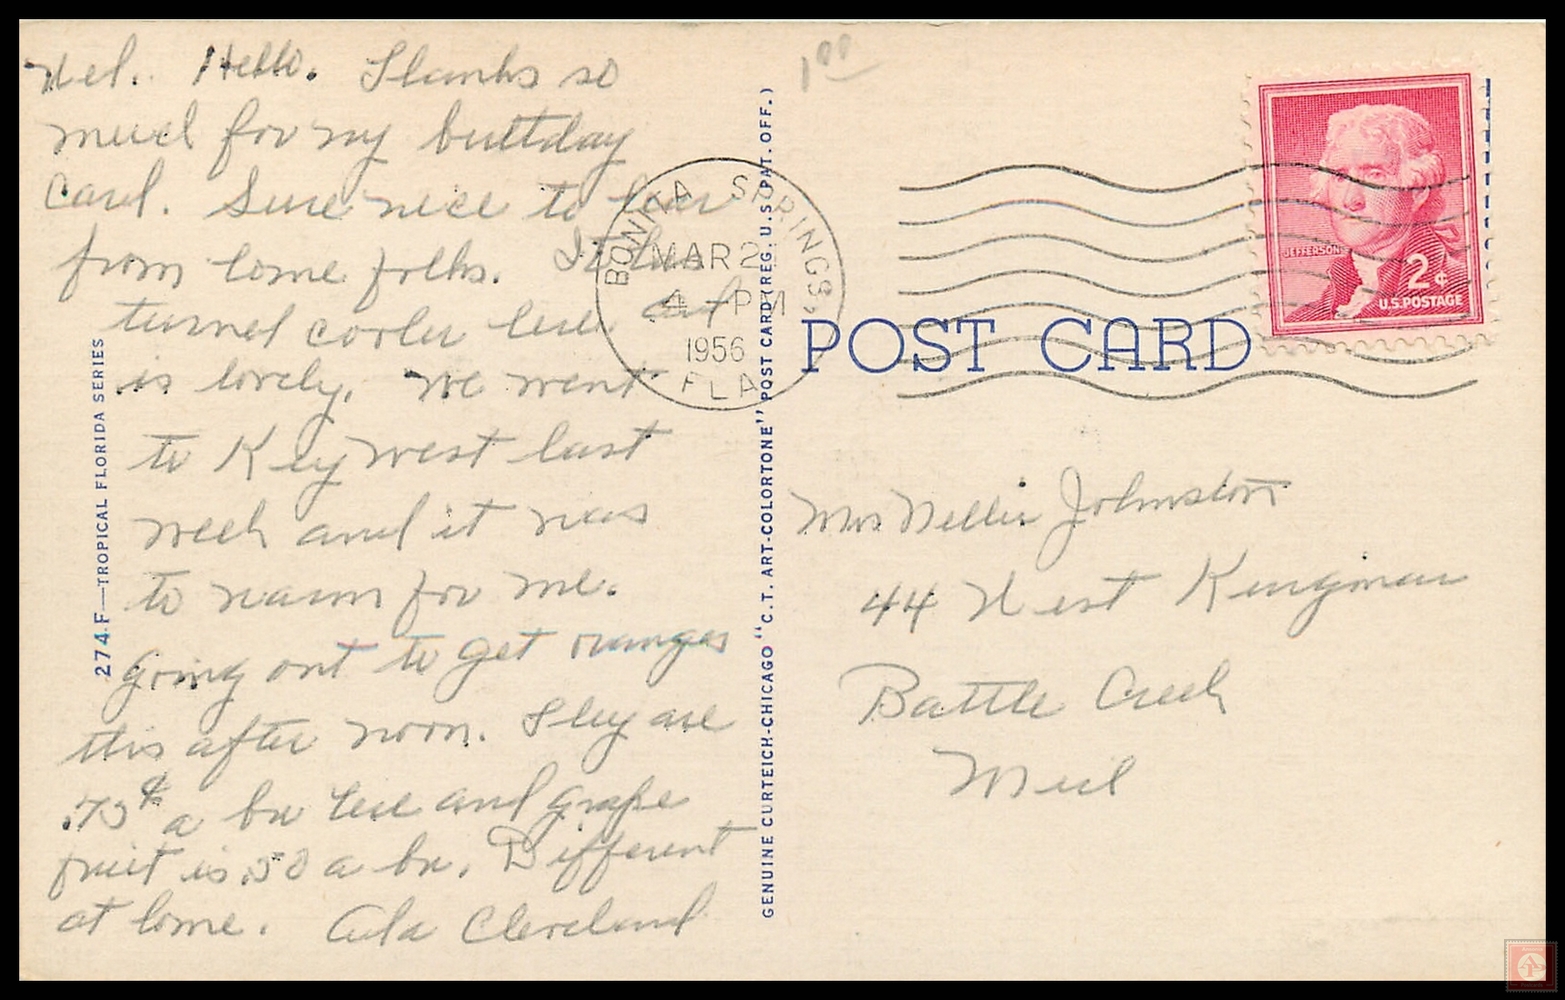 Nel. Hello. Thanks so
much for my birthday
card. Sure nice to hear
from home folks. It has
turned cooler here and
is lovely. We went
to Key West last
week and it was
to warm for me.
Going out to get oranges
this after noon. They are
.75¢ a bu here and grape
fruit is .50 a bu. Different
at home. Cleveland
274 F—TROPICAL FLORIDA SERIES
GENUINE CURTEICH-CHICAGO "C.T. ART-COLORTONE" POST CARD (REG. U.S. PAT. OFF.)
1 00
BONITA SPRINGS,
MAR 2
4 - PM
1956
FLA
JEFFERSON
2¢
U.S. POSTAGE
POST CARD
Mrs Nellie Johnston
44 West Kingman
Battle Creek
Mich